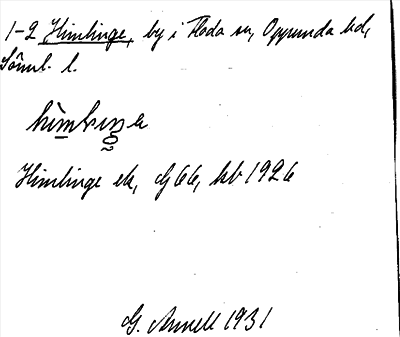 1-2 Himlinge, by i Floda sn, Oppunda hd,
Söml. l.
Himlinge ek, GJ 66, kb 1926
G. Annell 1931